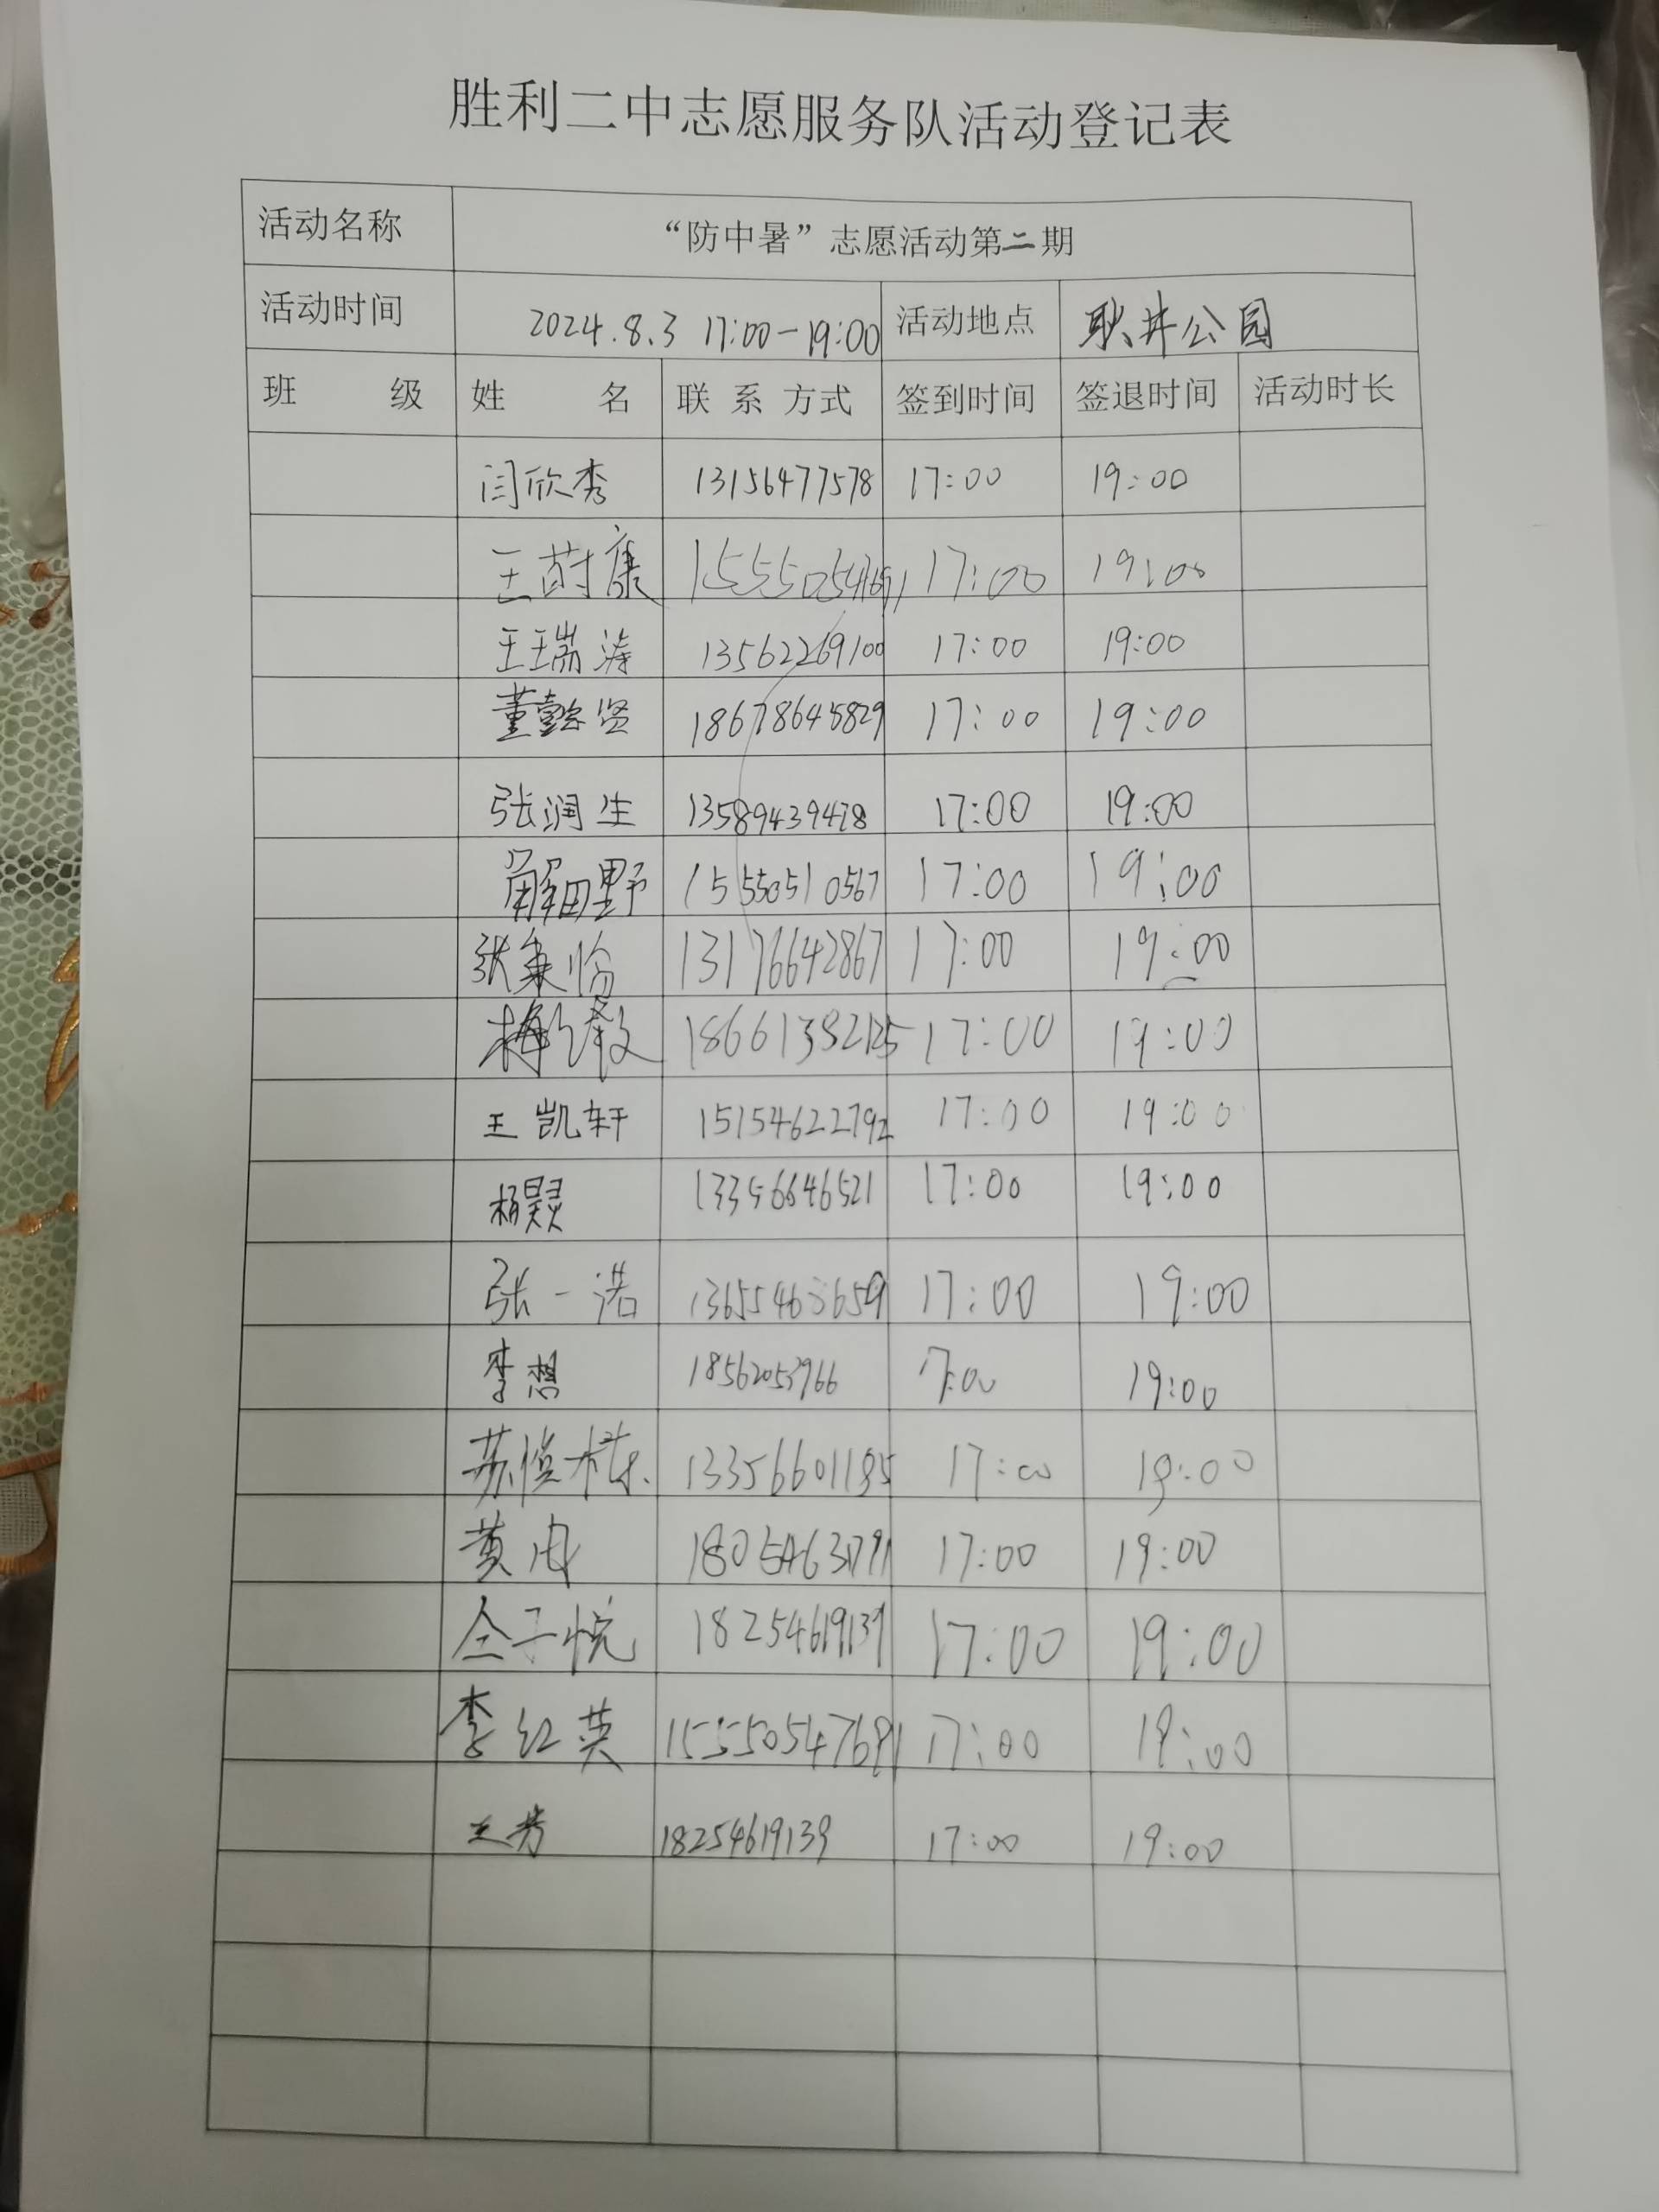 胜利二中志愿服务队活动登记表
活动名称 “防中暑”志愿活动第二期
活动时间 2024.8.3 17:00-19:00 活动地点 耿井公园
班 级 姓 名 联 系 方式 签到时间 签退时间 活动时长
闫欣秀 13156477578 17:00 19:00
王莳康 17:00 19:00
王瑞涛 13562269100 17:00 19:00
董懿贤 18678645829 17:00 19:00
张润生 13589439478 17:00 19:00
解田野 15550510567 17:00 19:00
张秉怡 13176642867 17:00 19:00
17:00 19:00
王凯轩 15154622792 17:00 19:00
杨 13356646521 17:00 19:00
张一诺 17:00 19:00
李想 17:00 19:00
苏 栋 13356601195 17:00 19:00
黄冉 17:00 19:00
仝子悦 18254619139 17:00 19:00
李红英 15550547691 17:00 19:00
王芳 18254619139 17:00 19:00